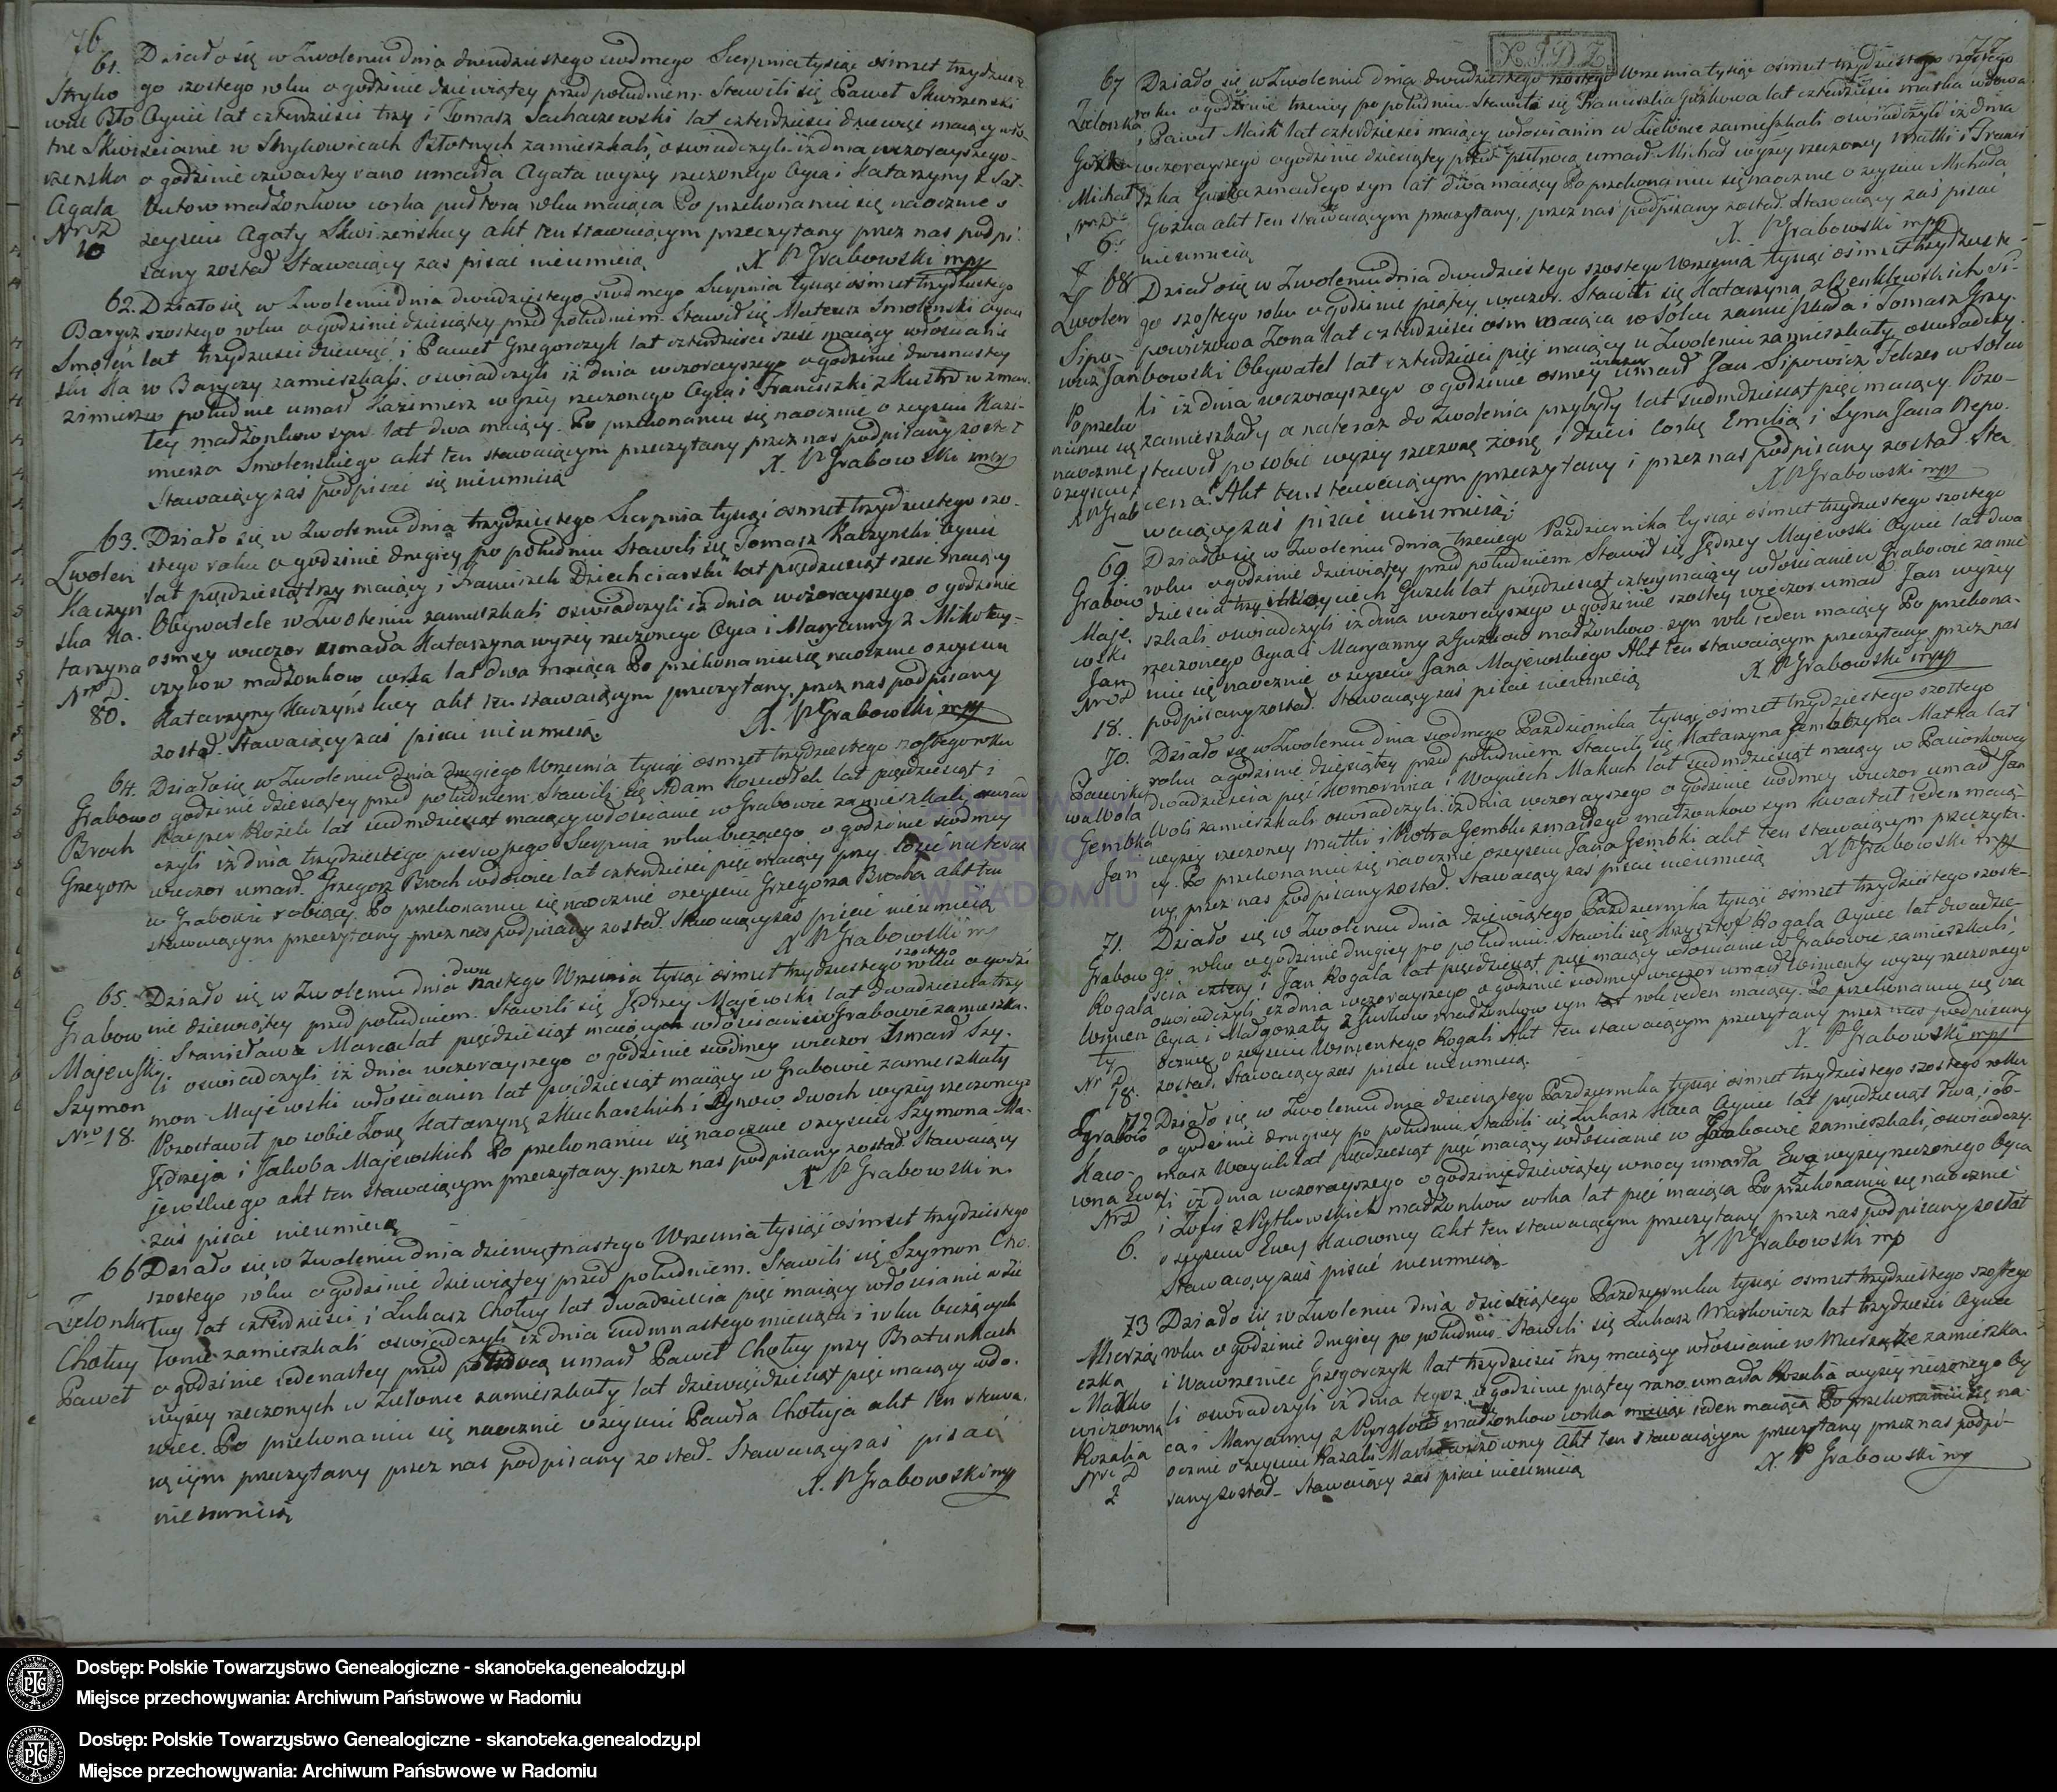 76.
61. Działo się w Zwoleniu dnia dwudziestego siodmego Sierpnia tysiąc ośmset trzydzieste-
go szostego roku o godzinie dziewiątey przed południem. Stawili się Paweł Skwirzenski
Oycie lat czterdziesci trzy i Tomasz lat czterdziesci dziewięć maiący wło-
scianie w Strykowicach Błotnych zamieszkali, oswiadczyli iż dnia wczorayszego
o godzinie czwartey rano umarła Agata wyżey rzeczonego Oyca i Katarzyny z
małżonkow corka pułtora roku maiąca Po przekonaniu się naocznie o
zeyściu Agaty Skwirzeńskiey akt ten stawaiącym przeczytany przez nas podpi-
sany został Stawaiący zas pisać nieumieią X P Grabowski mp
Stryko
wice Bło
tne Skwi
rzenska
Agata
Nr D
10
62. Działo się w Zwoleniu dnia dwudziestego siodmego Sierpnia tysiąc ośmset trzydziestego
szostego roku o godzinie dziesiątey przed południem. Stawił się Mateusz Smolenski Oyciec
lat trzydziesci dziewięć i Paweł Grzegorczyk lat czterdziesci sześć maiący włościanie
w Baryczy zamieszkali, oswiadczyli iż dnia wczorayszego o godzinie dwunastey
w południe umarł Kazimierz wyżey rzeczonego Oyca i Franciszki z zmar-
łey małżonkow syn lat dwa maiący. Po przekonaniu się naocznie o zeyściu Kazi-
mierza Smolenskiego akt ten stawaiącym przeczytany przez nas podpisany został
Stawaiący zaś podpisać się nieumieią X. P Grabowski mp
Barycz
Smoleń
ski Ka
zimierz
63. Działo się w Zwoleniu dnia trzydziestego Sierpnia tysiąc osmset trzydziestego szo-
stego roku o godzinie drugiey po południu Stawili się Tomasz Kaczynski Oyciec
lat pięćdziesiąt trzy maiący i Franciszek Dziechciarski lat pięćdziesiąt szesc maiący
Obywatele w Zwoleniu zamieszkali oswiadczyli iż dnia wczorayszego o godzinie
osmey wieczor umarła Katarzyna wyżey rzeczonego Oyca i Maryanny z Mikołay-
czykow małżonkow corka lat dwa maiąca Po przekonaniu się naocznie o zeysciu
Katarzyny Kaczyńskiey akt ten stawaiącym przeczytany, przez nas podpisany
został. Stawaiący zaś pisać nieumieią. X. P Grabowski mp
Zwoleń
Kaczyn
ska Ka-
tarzyna
Nro D.
80.
64. Działo się w Zwoleniu dnia drugiego Wrzesnia tysiąc osmset trzydziestego szostego roku
o godzinie dziesiątey przed południem. Stawili się Adam lat pięćdziesiąt i
Kacper lat siedmdziesiąt maiący włościanie w Grabowie zamieszkali, oswiad-
czyli iż dnia trzydziestego pierwszego Sierpnia roku bieżącego o godzinie siodmey
wieczor umarł. Grzegorz Broch wdowiec lat czterdziesci pięć maiący przy na teraz
w Grabowie robiący. Po przekonaniu się naocznie o zeysciu Grzegorza Brocha akt ten
stawaiącym przeczytany przez nas podpisany został. Stawaiący zaś pisać nieumieią
X P Grabowski m
Grabow
Broch
Grzegorz
65. Działo się w Zwoleniu dnia dwunastego Wrzesnia tysiąc ośmset trzydziestego szostego roku o godzi-
nie dziewiątey przed południem. Stawili się Jędrzey Majewski lat dwadziescia trzy
i Stanisław lat pięćdziesiąt maiących włościanie w Grabowie zamieszka-
li oswiadczyli iż dnia wczorayszego o godzinie siodmey wieczor umarł Szy-
mon Majewski włościanin lat pięćdziesiąt maiący w Grabowie zamieszkały
Pozostawił po sobie Żonę Katarzynę z Kucharskich i Synow dwoch wyżey rzeczonego
Jędrzeja i Jakoba Majewskich Po przekonaniu się naocznie o zeysciu Szymona Ma-
jewskiego akt ten stawaiącym przeczytany, przez nas podpisany został Stawaiący
zaś pisać nieumieią X P Grabowski m
Grabow
Majewski
Szymon
Nro 18.
66 Działo się w Zwoleniu dnia dziewiętnastego Wrzesnia tysiąc ośmset trzydziestego
szostego roku o godzinie dziewiątey przed południem. Stawili się Szymon Cho-
łuy lat czterdziesci i Łukasz Chołuy lat dwadziescia pięć maiący włościanie w Zie
lonce zamieszkali oswiadczyli iż dnia siedmnastego miesiąca i roku bieżących
o godzinie iedenastey przed północą umarł Paweł Chołuy przy Bratunkach
wyżey rzeczonych w Zielonce zamieszkały lat dziewięćdziesiąt pięć maiący wdo-
wiec. Po przekonaniu się naocznie o zeysciu Pawła Chołuja akt ten stawa-
iącym przeczytany przez nas podpisany został. Stawaiący zaś pisać
nieumieią X. P Grabowski mp
Zielonka
Chołuy
Paweł
X.J.D.Z.
77
67 Działo się w Zwoleniu dnia dwudziestego szostego Wrzesnia tysiąc ośmset trzydziestego szostego
roku o godzinie trzeciey po południu. Stawiła się Franciszka Guzkowa lat czterdziesci matka wdowa
i Paweł Maik lat czterdziesci maiący włościanin w Zielonce zamieszkali oswiadczyli iż dnia
wczorayszego o godzinie dziesiątey przed północą umarł Michał wyżey rzeczoney Matki i Franci
szka Guzka zmarłego syn lat dwa maiący Po przekonaniu się naocznie o zeysciu Michała
Guzka akt ten stawaiącym przeczytany, przez nas podpisany został. Stawaiący zaś pisać
nieumieią X. P Grabowski mp
Zielonka
Guzka
Michał
Nro D
6.
68 Działo się w Zwoleniu dnia dwudziestego szostego Wrzesnia tysiąc ośmset trzydzieste-
go szostego roku o godzinie piątey wieczor. Stawili się Katarzyna z Si-
powiczowa Żona lat czterdziesci osm maiąca w Solcu zamieszkała i Tomasz Grzy-
bowski Obywatel lat czterdziesci pięć maiący w Zwoleniu zamieszkały, oswiadczy-
li iż dnia wczorayszego o godzinie osmey wieczor umarł Jan Sipowicz w Solcu
zamieszkały a na teraz do Zwolenia przybyły lat siedmdziesiąt pięć maiący. Pozo-
stawił po sobie wyżey rzeczoną żonę i dzieci corkę Emilię i Syna Jana Nepo-
cena. Akt ten stawaiącym przeczytany i przez nas podpisany został. Sta-
waiący zaś pisać nieumieią. X P Grabowski mp
Zwolen
Sipo-
wicz Jan
Po przeko
naniu się
naocznie
o zeysciu
X P Grab
69 Działo się w Zwoleniu dnia trzeciego Pazdziernika tysiąc ośmset trzydziestego szostego
roku o godzinie dziewiątey przed południem Stawił się Jędrzey Majewski Oyciec lat dwa
dziescia trzy i Woyciech Guzek lat pięćdziesiąt cztery maiący włościanie w Grabowie zamie
szkali oswiadczyli iż dnia wczorayszego o godzinie szostey wieczor umarł Jan wyżey
rzeczonego Oyca i Maryanny z Guzkow małżonkow syn rok ieden maiący Po przekona-
niu się naocznie o zeysciu Jana Majewskiego Akt ten stawaiącym przeczytany, przez nas
podpisany został. Stawaiący zaś pisać nieumieią X P Grabowski mp
Grabow
Maje
wski
Jan
Nro D
18.
70. Działo się w Zwoleniu dnia siodmego Pazdziernika tysiąc ośmset trzydziestego szostego
roku o godzinie dziesiątey przed południem Stawili się Katarzyna Gembczyna Matka lat
dwadziescia pięć Komornica i Woyciech Makuch lat siedmdziesiąt maiący w Pacionkowey
Woli zamieszkali oswiadczyli iż dnia wczorayszego o godzinie siodmey wieczor umarł Jan
wyżey rzeczoney matki i Piotra Gembki zmarłego małżonkow syn kwartał ieden maią-
cy. Po przekonaniu się naocznie o zeysciu Jana Gembki akt ten stawaiącym przeczyta-
ny, przez nas podpisany został. Stawaiący zaś pisać nieumieią X P Grabowski mp
wa Wola
Gembka
Jan
71. Działo się w Zwoleniu dnia dziewiątego Pazdziernika tysiąc ośmset trzydziestego szoste-
go roku o godzinie drugiey po południu. Stawili się Krzysztof Rogala Oyciec lat dwadzie-
scia cztery i Jan Rogala lat pięćdziesiąt pięć maiący włościanie w Grabowie zamieszkali,
oswiadczyli iż dnia wczorayszego o godzinie siodmey wieczor umarł Wincenty wyżey rzeczonego
Oyca i Małgorzaty z małżonkow syn rok ieden maiący. Po przekonaniu się na
ocznie o zeysciu Wincentego Rogali Akt ten stawaiącym przeczytany przez nas podpisany
został. Stawaiący zaś pisać nieumieią. X. P Grabowski mp
Grabow
Rogala
Wincen
ty
Nr D
18.
72 Działo się w Zwoleniu dnia dziesiątego Pazdziernika tysiąc ośmset trzydziestego szostego roku
o godzinie drugiey po południu Stawili się Łukasz Kaca Oyciec lat pięćdziesiąt dwa, i To-
masz lat pięćdziesiąt pięć maiący włościanie w Grabowie zamieszkali, oswiadczy-
li iż dnia wczorayszego o godzinie dziewiątey w nocy umarła Ewa wyżey rzeczonego Oyca
i Zofii z małżonkow corka lat pięć maiąca Po przekonaniu się naocznie
o zeysciu Ewy Akt ten stawaiącym przeczytany przez nas podpisany został
Stawaiący zaś pisać nieumieią. X P Grabowski mp
Grabow
wna Ewa
Nr D
6.
73 Działo się w Zwoleniu dnia dziesiątego Pazdziernika tysiąc osmset trzydziestego szostego
roku o godzinie drugiey po południu Stawili się Łukasz Markowicz lat trzydziesci Oyciec
i Wawrzeniec Grzegorczyk lat trzydziesci trzy maiący włościanie w zamieszka-
li oswiadczyli iż dnia tegoż o godzinie piątey rano umarła Rozalia wyżey rzeczonego Oy
ca i Maryanny z małżonkow corka miesiąc ieden maiąca Po przekonaniu się na
ocznie o zeysciu Rozalii Markowiczowny Akt ten stawaiącym przeczytany przez nas podpi-
sany został. Stawaiący zaś pisać nieumieią X. P Grabowski mp
Mierzą
czka
Marko
wiczowna
Rozalia
Nro D
2
ARCHIWUM
PAŃSTWOWE
W RADOMIU
Dostęp: Polskie Towarzystwo Genealogiczne - skanoteka.genealodzy.pl
Miejsce przechowywania: Archiwum Państwowe w Radomiu
Dostęp: Polskie Towarzystwo Genealogiczne - skanoteka.genealodzy.pl
Miejsce przechowywania: Archiwum Państwowe w Radomiu